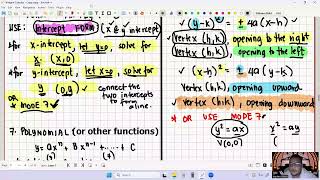 USE: intercept FORM (x & y intercept)
* for x-intercept, let y=0, solve for
x ∴ (x,0)
* for y-intercept, let x=0, solve for
y (0,y)
connect the two intercepts to form a line.
OR
* MODE 7 ✓
7. POLYNOMIAL (or other functions)
y = Ax^n + Bx^(n-1) + ... + C
✓ (y-k)² = ± 4a (x-h)
vertex (h,k), opening to the right
vertex (h,k), opening to the left
✓ (x-h)² = ± 4a (y-k)
Vertex (h,k), opening upward
vertex (h,k), opening downward
* OR USE MODE 7
y² = ax
x² = ay
V(0,0)
(